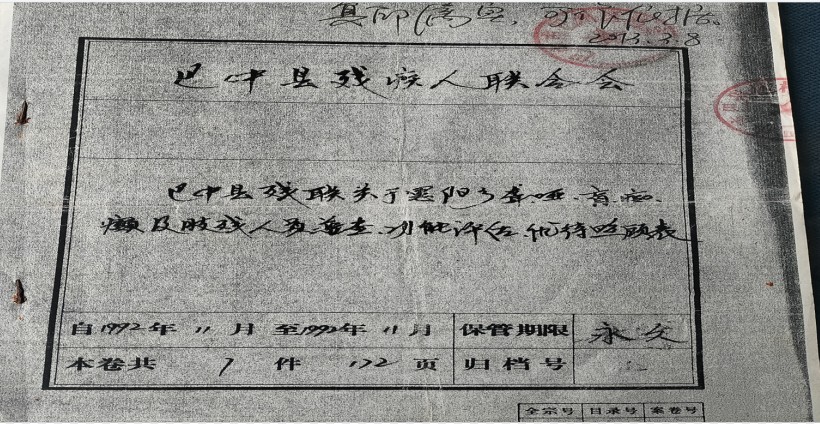 复印属实,
2013.3.8
巴中县残疾人联合会
巴中县残联关于恩阳了聋哑、盲、痴、
癫及肢残人员普查、功能评估、优待照顾表
自1992年11月至1992年11月 保管期限 永久
本卷共 7 件 172 页 归档号
全宗号 目录号 案卷号